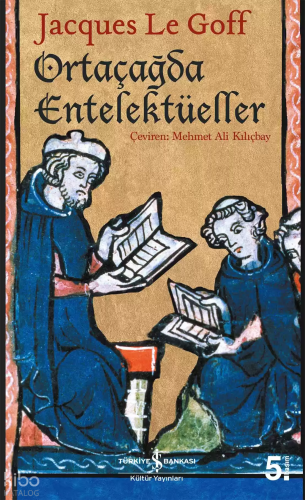 Jacques Le Goff
Ortaçağda
Entelektüeller
Çeviren: Mehmet Ali Kılıçbay
TÜRKİYE İŞ BANKASI
Kültür Yayınları
5.
Basım
kibo
KATALOG